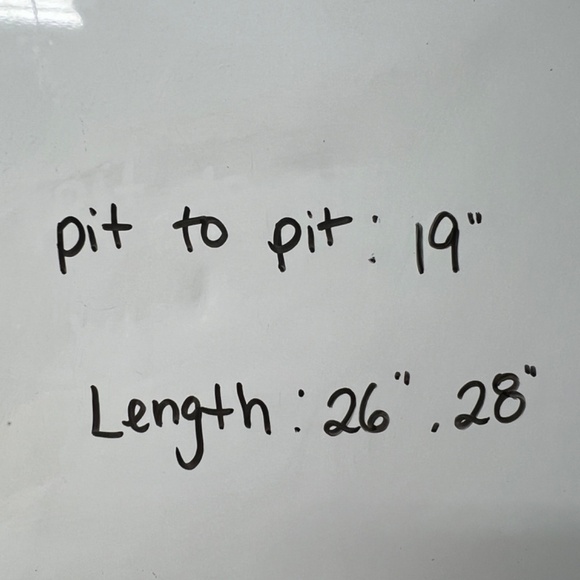 pit to pit: 19"
Length: 26". 28"